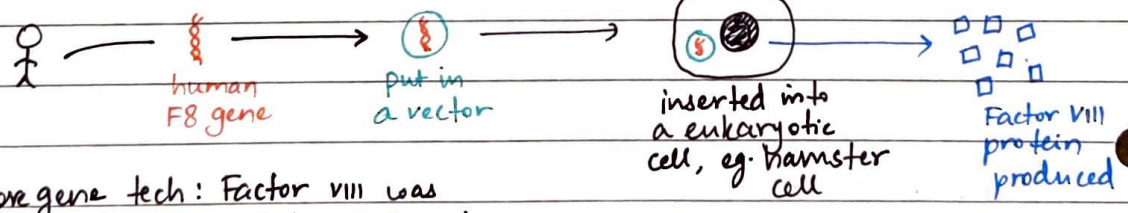 human
F8 gene
put in
a vector
inserted into
a eukaryotic
cell, eg. hamster
cell
Factor VIII
protein
produced
gene tech: Factor VIII was